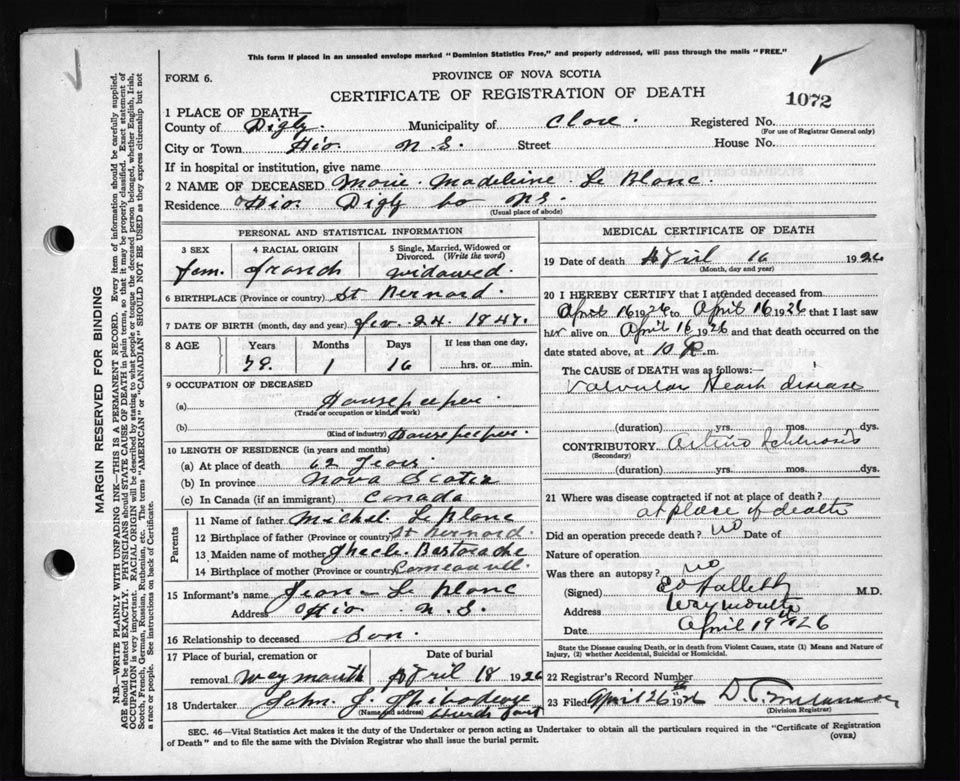 This form if placed in an unsealed envelope marked "Dominion Statistics Free," and properly addressed, will pass through the mails "FREE."
FORM 6.
PROVINCE OF NOVA SCOTIA
CERTIFICATE OF REGISTRATION OF DEATH
1072
1 PLACE OF DEATH—
County of Digby. Municipality of Clare. Registered No.
(For use of Registrar General only)
City or Town Ohio N.S. Street House No.
If in hospital or institution, give name
2 NAME OF DECEASED Marie Madeleine Le Blanc.
Residence Ohio Digby Co NS.
(Usual place of abode)
PERSONAL AND STATISTICAL INFORMATION
3 SEX 4 RACIAL ORIGIN 5 Single, Married, Widowed or Divorced. (Write the word)
fem. french widowed.
6 BIRTHPLACE (Province or country) St Bernard.
7 DATE OF BIRTH (month, day and year) 24. 1847.
8 AGE Years Months Days If less than one day,
79. 1 16 hrs. or min.
9 OCCUPATION OF DECEASED
(a) Housekeeper
(Trade or occupation or kind of work)
(b) Housekeeper.
(Kind of industry)
10 LENGTH OF RESIDENCE (in years and months)
(a) At place of death 62 Years
(b) In province Nova Scotia
(c) In Canada (if an immigrant) Canada
Parents
11 Name of father Michel Le Blanc
12 Birthplace of father (Province or country) St Bernard.
13 Maiden name of mother Bastarache
14 Birthplace of mother (Province or country) Comeauvill.
15 Informant's name Le Blanc
Address Ohio N.S.
16 Relationship to deceased Son.
17 Place of burial, cremation or removal Date of burial
Weymouth April 18 1926
18 Undertaker John J Thibodeau
(Name and address) Church Point
MEDICAL CERTIFICATE OF DEATH
19 Date of death April 16 1926
(Month, day and year)
20 I HEREBY CERTIFY that I attended deceased from
April 16 1926 to April 16 1926 that I last saw
her alive on April 16 1926 and that death occurred on the
date stated above, at 10 P.m.
The CAUSE of DEATH was as follows:
Valvular Heart disease
(duration) yrs. mos. dys.
CONTRIBUTORY Arterio Sclerosis
(Secondary)
(duration) yrs. mos. dys.
21 Where was disease contracted if not at place of death?
at place of death
Did an operation precede death? no Date of
Nature of operation
Was there an autopsy? no
(Signed) M.D.
Address Weymouth
Date April 19th 26
State the Disease causing Death, or in death from Violent Causes, state (1) Means and Nature of
Injury, (2) whether Accidental, Suicidal or Homicidal.
22 Registrar's Record Number
23 Filed April 26th 1926
(Division Registrar)
SEC. 46—Vital Statistics Act makes it the duty of the Undertaker or person acting as Undertaker to obtain all the particulars required in the "Certificate of Registration
of Death" and to file the same with the Division Registrar who shall issue the burial permit.
(OVER)
MARGIN RESERVED FOR BINDING
N.B.—WRITE PLAINLY WITH UNFADING INK—THIS IS A PERMANENT RECORD. Every item of information should be carefully supplied.
AGE should be stated EXACTLY. PHYSICIANS should STATE CAUSE OF DEATH in plain terms, so that it may be properly classified. Exact statement of
OCCUPATION is very important. RACIAL ORIGIN will be described by stating to what people or tongue the deceased person belonged, whether English, Irish,
Scotch, French, German, Russian, Ruthenian, etc. The terms "AMERICAN" or "CANADIAN" SHOULD NOT BE USED as they express citizenship but not
a race or people. See instructions on back of Certificate.